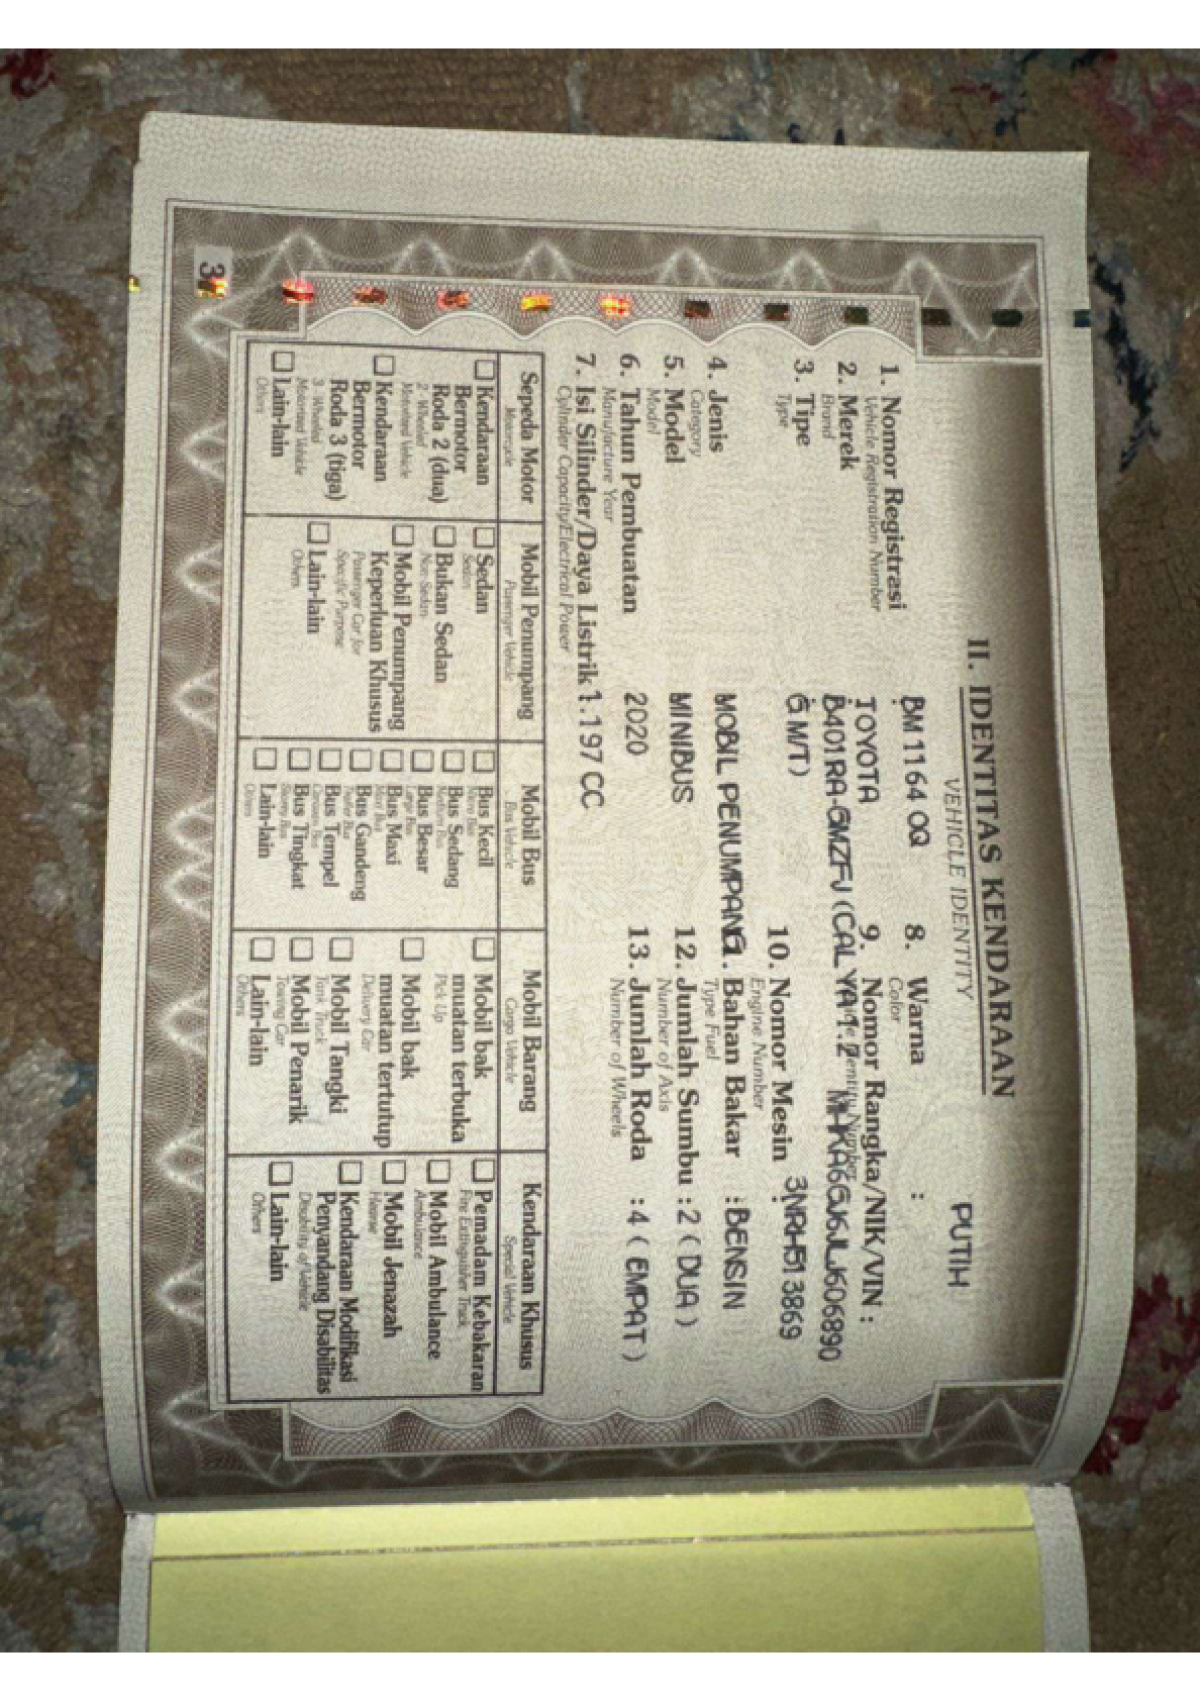 II. IDENTITAS KENDARAAN
VEHICLE IDENTITY
1. Nomor Registrasi : BM 1164 OQ
Vehicle Registration Number
2. Merek : TOYOTA
Brand
3. Tipe : B401RA-GMZFJ (CALYA 1.2
Type
G M/T)
4. Jenis : MOBIL PENUMPANG
Category
5. Model : MINIBUS
Model
6. Tahun Pembuatan : 2020
Manufacture Year
7. Isi Silinder/Daya Listrik : 1.197 CC
Cylinder Capacity/Electrical Power
8. Warna : PUTIH
Color
9. Nomor Rangka/NIK/VIN :
MHKA6GJ6JLJ606890
10. Nomor Mesin : 3NRH513869
Engine Number
11. Bahan Bakar : BENSIN
Type Fuel
12. Jumlah Sumbu : 2 ( DUA )
Number of Axis
13. Jumlah Roda : 4 ( EMPAT )
Number of Wheels
Sepeda Motor
Motorcycle
Kendaraan
Bermotor
Roda 2 (dua)
2 - Wheeled
Motorized Vehicle
Kendaraan
Bermotor
Roda 3 (tiga)
3 - Wheeled
Motorized Vehicle
Lain-lain
Others
Mobil Penumpang
Passenger Vehicle
Sedan
Sedan
Bukan Sedan
Non-Sedan
Mobil Penumpang
Keperluan Khusus
Passenger Car for
Specific Purpose
Lain-lain
Others
Mobil Bus
Bus Vehicle
Bus Kecil
Bus Sedang
Medium Bus
Bus Besar
Large Bus
Bus Maxi
Maxi Bus
Bus Gandeng
Bus Tempel
Bus Tingkat
Lain-lain
Others
Mobil Barang
Cargo Vehicle
Mobil bak
muatan terbuka
Pick Up
Mobil bak
muatan tertutup
Delivery Car
Mobil Tangki
Tank Truck
Mobil Penarik
Towing Car
Lain-lain
Others
Kendaraan Khusus
Special Vehicle
Pemadam Kebakaran
Fire Extinguisher Truck
Mobil Ambulance
Ambulance
Mobil Jenazah
Hearse
Kendaraan Modifikasi
Penyandang Disabilitas
Disability of Vehicle
Lain-lain
Others
3